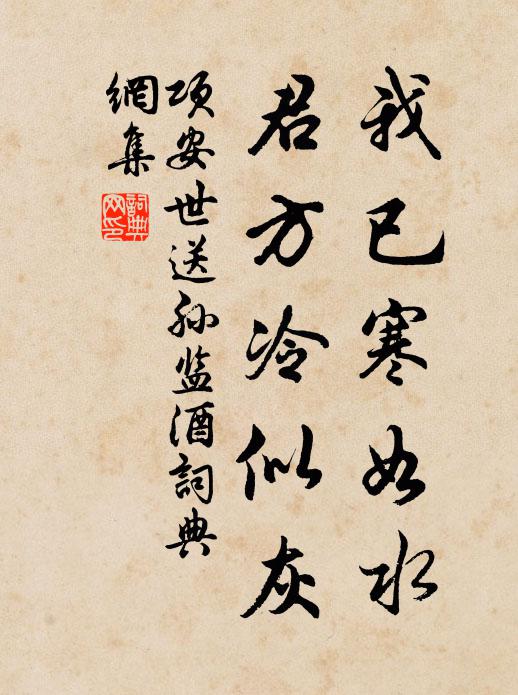 我已寒如水
君方冷似灰
项安世送孙监酒詞典
網集
詞典
网印